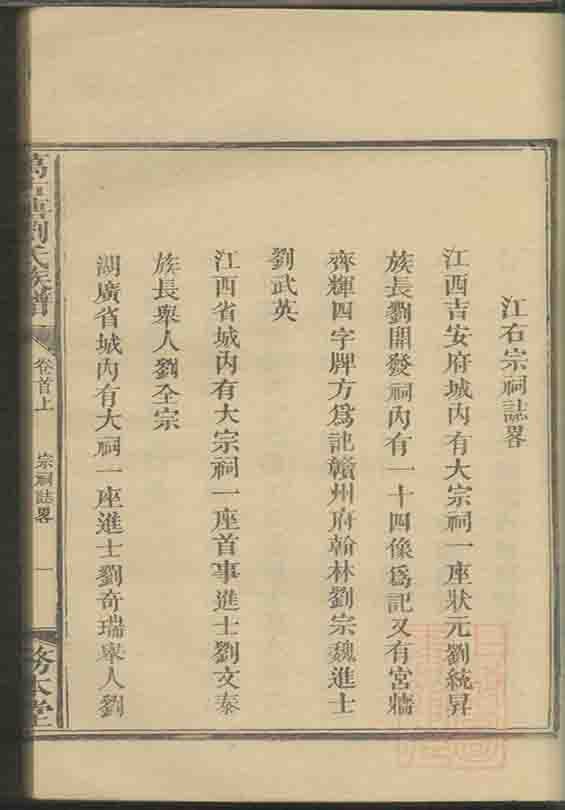 江右宗祠誌畧
江西吉安府城內有大宗祠一座狀元劉統昇
族長劉開發祠內有一十四像爲記又有宮牆
齊輝四字牌方爲記贛州府翰林劉宗魏進士
劉武英
江西省城內有大宗祠一座首事進士劉文泰
族長舉人劉全宗
湖廣省城內有大祠一座進士劉奇瑞舉人劉
劉氏族譜
卷首上
宗祠誌畧
一
務本堂